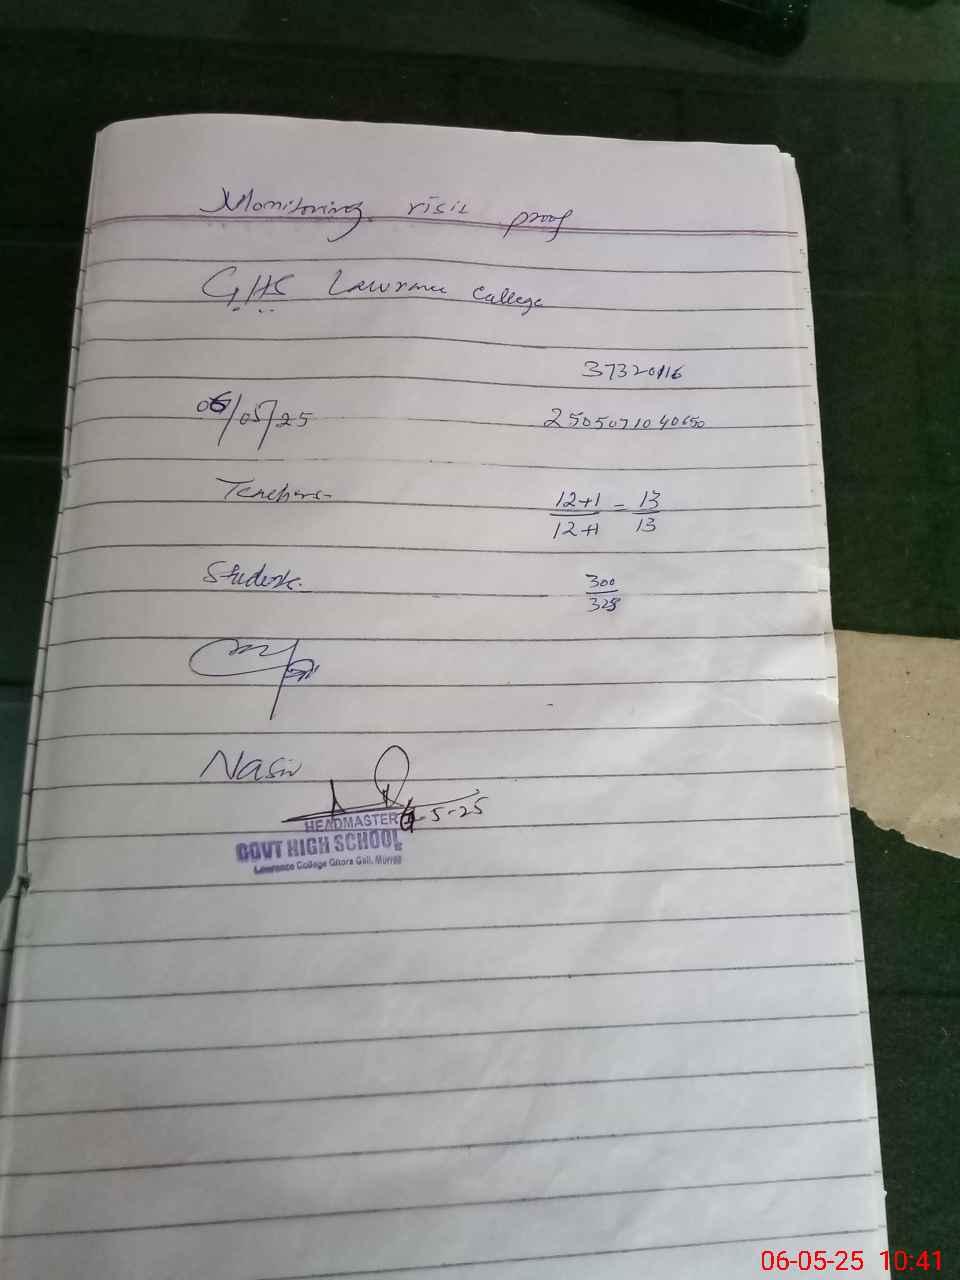 Monitoring visit proof
GHS Lawrance College
37320116
06/05/25
Teachers
12+1/12+1 = 13/13
Students
300/328
Nasir
-5-25
HEADMASTER
GOVT HIGH SCHOOL
Lawrence College Ghora Gali, Murree
06-05-25 10:41